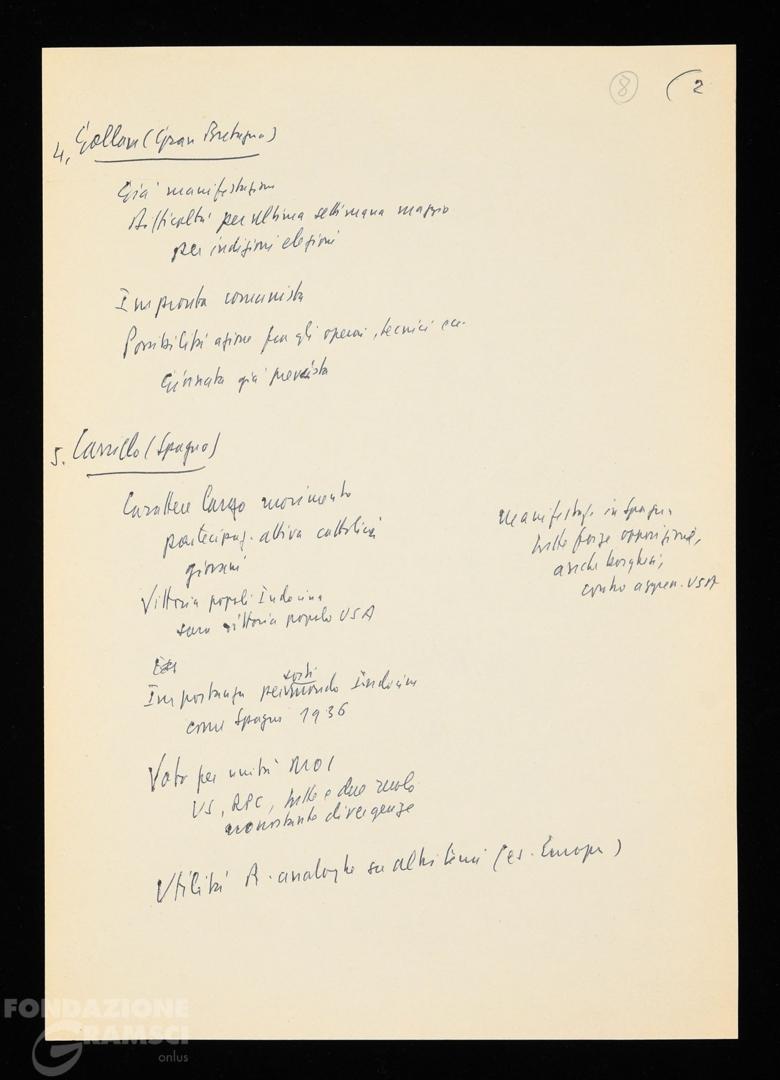 8 (2
4. Gollan (Gran Bretagna)
Già manifestazioni
Difficoltà per ultima settimana maggio
per indizioni elezioni
Impronta comunista
Possibilità azione fra gli operai, tecnici ecc.
Giornata già prevista
5. Carrillo (Spagna)
Carattere largo movimento
partecipaz. attiva cattolici
giovani
Vittoria popoli Indocina
sarà vittoria popolo USA
Importanza per sorti mondo Indocina
come Spagna 1936
Manifestaz. in Spagna
tutte forze opposizione,
anche borghesi,
contro aggress. USA
Voto per unità MOI
US, RPC, tutte e due
nonostante divergenze
Utilità R. analoghe su altri temi (es. Europa)
FONDAZIONE
GRAMSCI
onlus